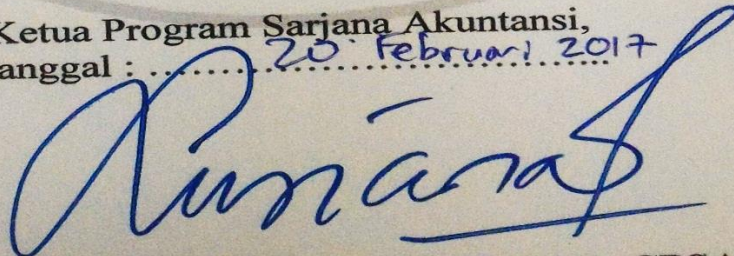 Ketua Program Sarjana Akuntansi,
anggal : ........20 Februari 2017